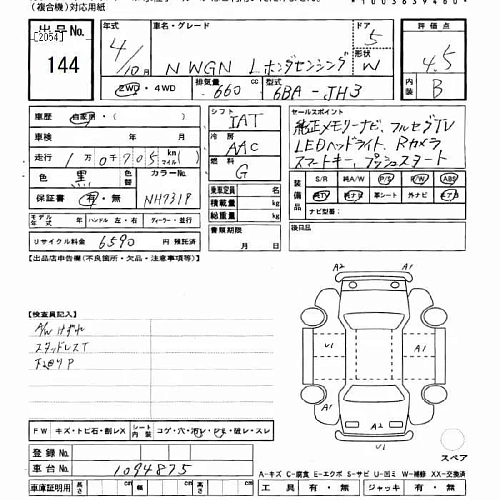 (複合機)対応用紙
出品No.
[2054]
144
年式
4/10月
車名・グレード
N WGN L ホンダセンシング
ドア
5
W
評価点
4.5
内装
B
2WD・4WD
排気量
660 cc
型式
6BA - JH3
車歴
自家用・(
)
車検 年 月
走行 1万0千705 km
マイル
色 黒
カラーNo.
NH731P
保証書 有・無
モデル年式 年 ハンドル 左・右 ディーラー・並行
リサイクル料金 6590 円 預託済
シフト
IAT
冷房
AAC
燃料
G
乗車定員 名
積載量 kg
総重量 kg
書類期限
月 日
セールスポイント
純正メモリーナビ、フルセグTV
LEDヘッドライト、Rカメラ
スマートキー、プッシュスタート
装備品
S/R 純A/W P/S P/W ABS
純TV 革シート 外ナビ
ナビ型番:
後日品
【出品店申告欄(不良箇所・欠品・注意事項等)】
【検査員記入】
A/Wけずれ
スタッドレスT
下廻りP
FW キズ・トビ石・割レX
シート内装
コゲ・穴・汚レ・シミ・破レ・スレ
登録No.
車台No. 1094875
車検証明用 長さ cm 幅 cm 高さ cm
A2
A1
U1
A1
U1
A1
A2
スペア
A-キズ C-腐食 E-エクボ S-サビ U-凹ミ W-補修 XX-交換済
工具 有・無 ジャッキ 有・無